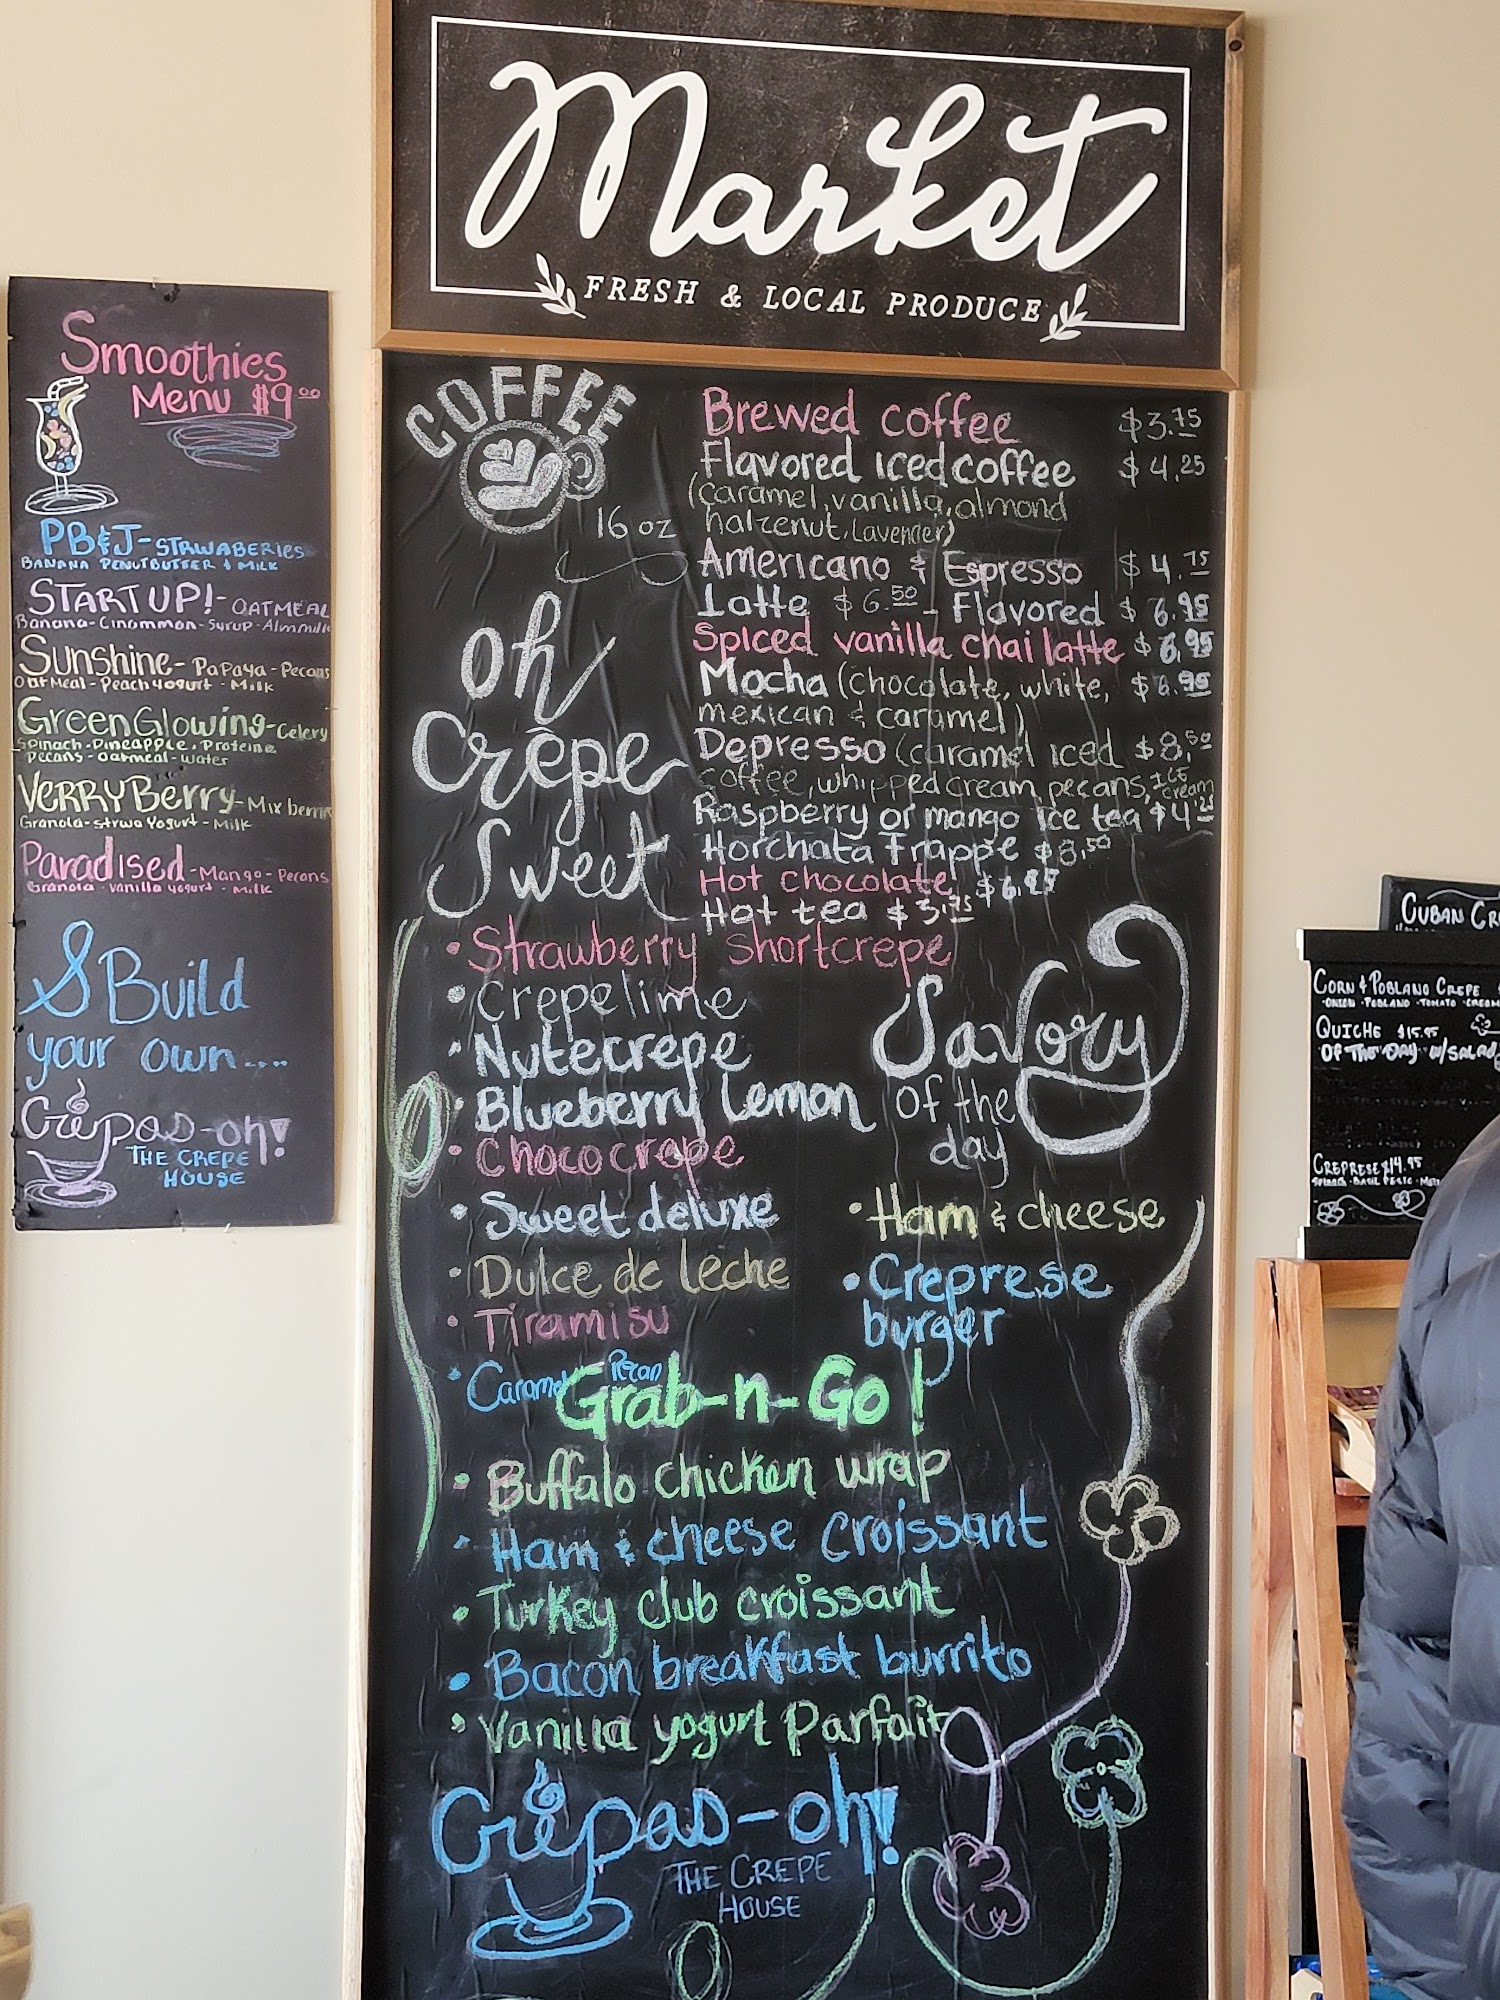 Market
FRESH & LOCAL PRODUCE
Smoothies
Menu $9.00
PB&J-STRWABERIES
BANANA PENUTBUTTER & MILK
START UP!-OATMEAL
Banana-Cinammon-Syrup-Almmilk
Sunshine-Papaya-Pecans
OatMeal-Peach Yogurt-Milk
Green Glowing-Celery
Spinach-Pineapple-Proteine
Pecans-Oatmeal-Water
VERRY Berry-Mix berrie
Granola-Strwa Yogurt-Milk
Paradised-Mango-Pecans
Granola-Vanilla Yogurt-Milk
& Build
your own....
Crêpas-oh!
THE CREPE
HOUSE
COFFEE
16 oz
Brewed coffee $3.75
Flavored iced coffee $4.25
(caramel, vanilla, almond
halzenut, lavender)
Americano & Espresso $4.75
Latte $6.50 - Flavored $6.95
Spiced vanilla chai latte $6.95
Mocha (chocolate, white, $6.95
mexican & caramel)
Depresso (caramel iced $8.50
coffee, whipped cream, pecans, ice cream
Raspberry or mango ice tea $4.25
Horchata Frappe $8.50
Hot chocolate $6.25
Hot tea $3.75
Oh
Crêpe
Sweet
• Strawberry shortcrepe
• Crepelime
• Nutecrepe
• Blueberry Lemon
• Chococrepe
• Sweet deluxe
• Dulce de leche
• Tiramisu
• Caramel Pecan
Savory
of the
day
• Ham & cheese
• Creprese
burger
Grab-n-Go!
• Buffalo chicken wrap
• Ham & cheese croissant
• Turkey club croissant
• Bacon breakfast burrito
• Vanilla yogurt Parfait
Crêpas-oh!
THE CREPE
HOUSE
CUBAN CR
CORN & POBLANO CREPE
ONION·POBLANO·TOMATO·CREAM
QUICHE $15.95
OF THE DAY W/SALAD
CREPRESE $14.95
SPINACH·BASIL PESTO